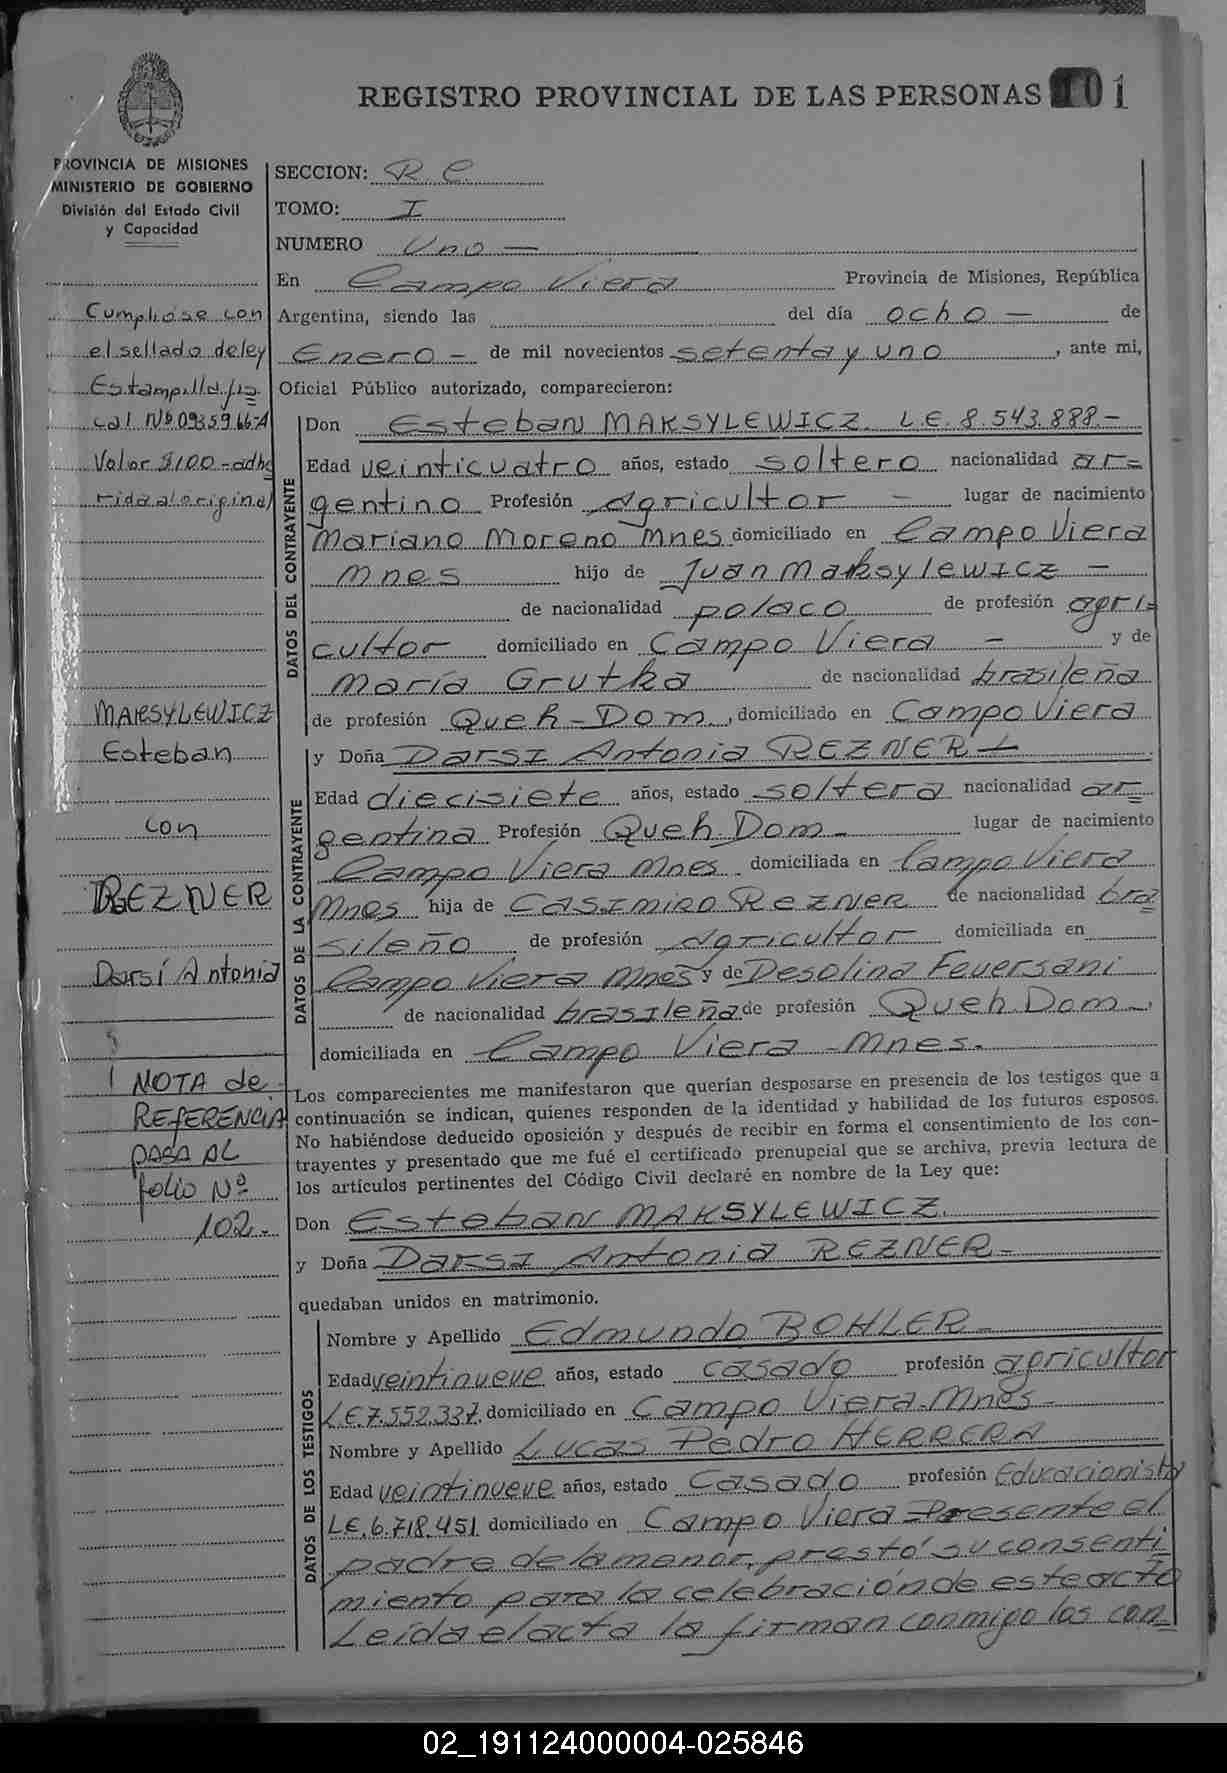 REGISTRO PROVINCIAL DE LAS PERSONAS 101
PROVINCIA DE MISIONES
MINISTERIO DE GOBIERNO
División del Estado Civil
y Capacidad
Cumplióse con
el sellado de ley
Estampilla fis=
cal Nº 0935966-A
Valor $100-adhe
rida al original
MAKSYLEWICZ
Esteban
con
REZNER
Darsí Antonia
NOTA de
REFERENCIA
PASA AL
folio Nº
102.-
SECCION: R. C.
TOMO: I
NUMERO Uno —
En Campo Viera Provincia de Misiones, República
Argentina, siendo las del día ocho — de
Enero - de mil novecientos setenta y uno, ante mi,
Oficial Público autorizado, comparecieron:
DATOS DEL CONTRAYENTE
Don Esteban MAKSYLEWICZ. L.E. 8.543.888.-
Edad veinticuatro años, estado soltero nacionalidad ar=
gentino Profesión Agricultor - lugar de nacimiento
Mariano Moreno Mnes domiciliado en Campo Viera
Mnes hijo de Juan Maksylewicz -
de nacionalidad polaco de profesión agri=
cultor domiciliado en Campo Viera - y de
María Grutka de nacionalidad brasileña
de profesión Queh-Dom., domiciliado en Campo Viera
DATOS DE LA CONTRAYENTE
y Doña Darsi Antonia REZNER
Edad diecisiete años, estado soltera nacionalidad ar=
gentina Profesión Queh. Dom - lugar de nacimiento
Campo Viera Mnes. domiciliada en Campo Viera
Mnes hija de Casimiro Rezner de nacionalidad bra=
sileño de profesión Agricultor domiciliada en
Campo Viera Mnes y de Desolina Feversani
de nacionalidad brasileña de profesión Queh. Dom-,
domiciliada en Campo Viera - Mnes.
Los comparecientes me manifestaron que querían desposarse en presencia de los testigos que a
continuación se indican, quienes responden de la identidad y habilidad de los futuros esposos.
No habiéndose deducido oposición y después de recibir en forma el consentimiento de los con-
trayentes y presentado que me fué el certificado prenupcial que se archiva, previa lectura de
los artículos pertinentes del Código Civil declaré en nombre de la Ley que:
Don Esteban MAKSYLEWICZ.
y Doña Darsi Antonia REZNER.-
quedaban unidos en matrimonio.
DATOS DE LOS TESTIGOS
Nombre y Apellido Edmundo BOHLER -
Edad veintinueve años, estado casado profesión agricultor
L.E. 7.552.337. domiciliado en Campo Viera-Mnes-
Nombre y Apellido Lucas Pedro HERRERA
Edad veintinueve años, estado Casado profesión Educacionista
L.E. 6.718.451 domiciliado en Campo Viera-Presente el
padre de la menor, prestó su consenti=
miento para la celebración de este acto
Leída el acta la firman conmigo los con=
02_191124000004-025846